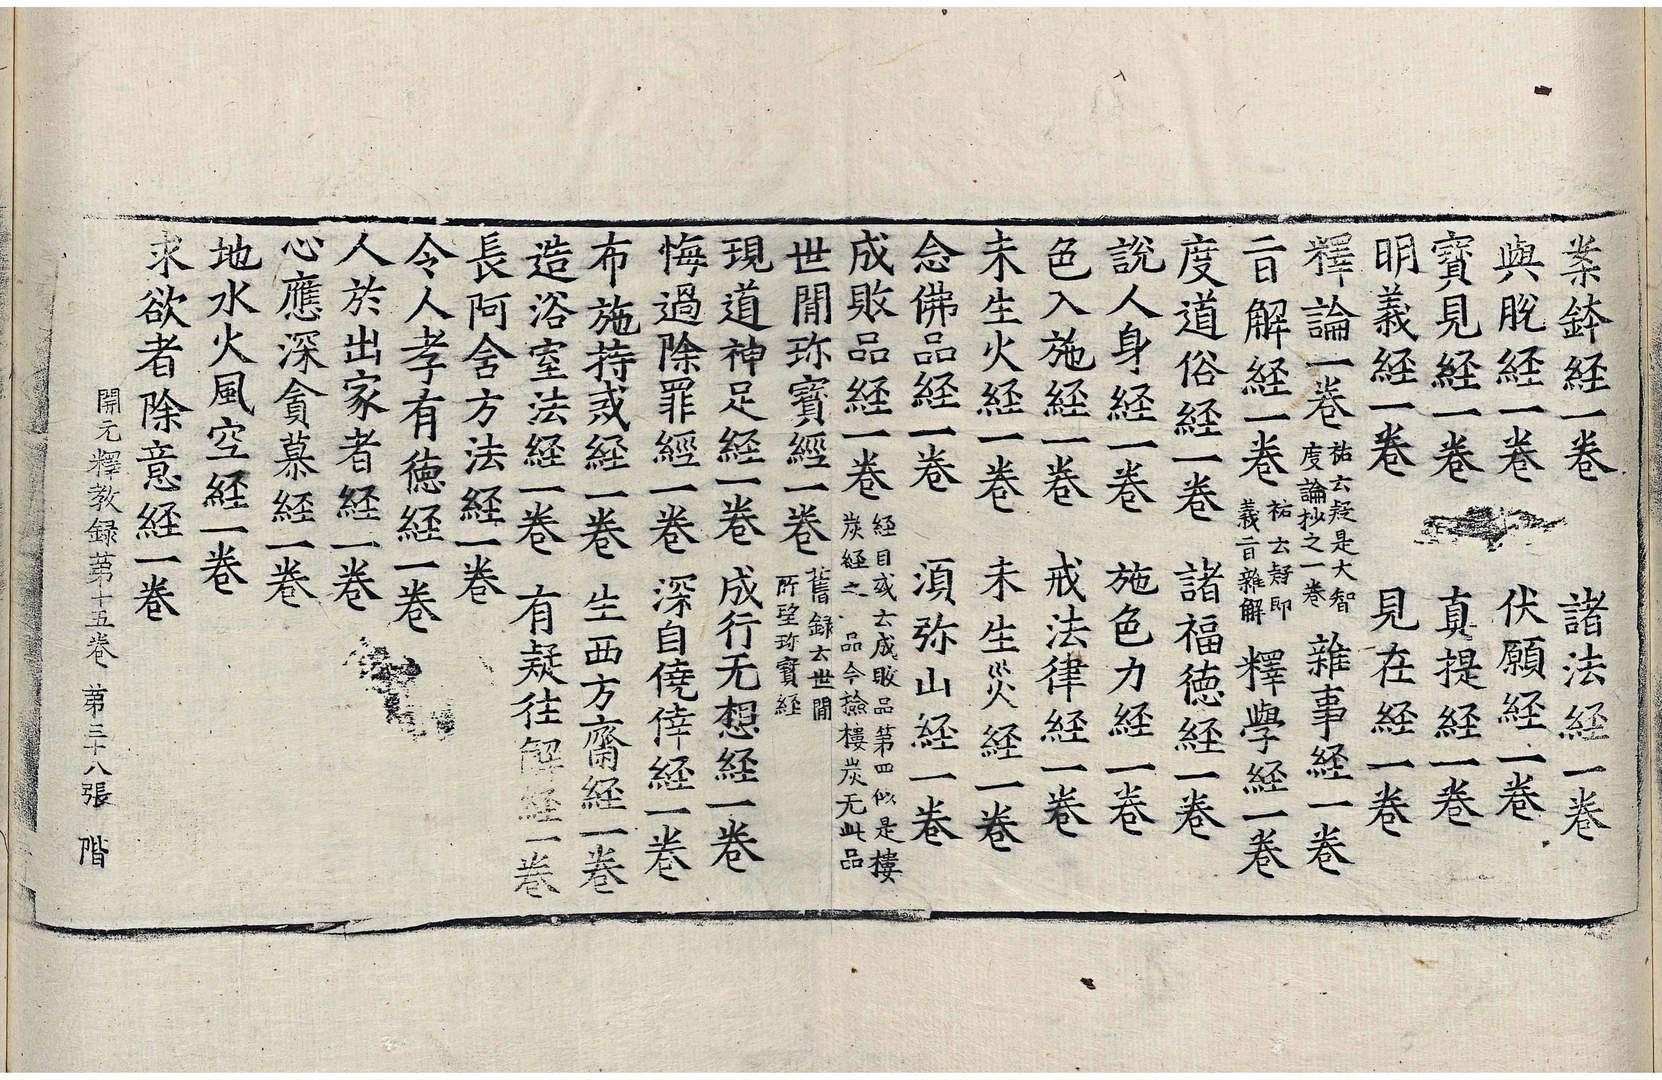 業鉢経一卷 諸法経一卷
與脫経一卷 伏願経一卷
寳見経一卷 真提経一卷
明義経一卷 見在経一卷
釋論一卷 祐云疑是大智度論抄之一卷 雜事経一卷
㫖解経一卷 祐云疑即義㫖雜解 釋學経一卷
度道俗経一卷 諸福徳経一卷
說人身経一卷 施色力経一卷
色入施経一卷 戒法律経一卷
未生火経一卷 未生災経一卷
念佛品経一卷 湏弥山経一卷
成敗品経一卷 経目或云成敗品第四似是樓炭経之一品今撿樓炭无此品
世間珎寳經一卷 舊録云世間所望珎寳経
現道神足経一卷 成行无想経一卷
悔過除罪經一卷 深自僥倖経一卷
布施持戒経一卷 生西方齋経一卷
造浴室法経一卷 有疑往解経一卷
長阿含方法経一卷
令人孝有徳経一卷
人於出家者経一卷
心應深貪慕経一卷
地水火風空経一卷
求欲者除意経一卷
開元釋教録苐十五卷 第三十八張 階